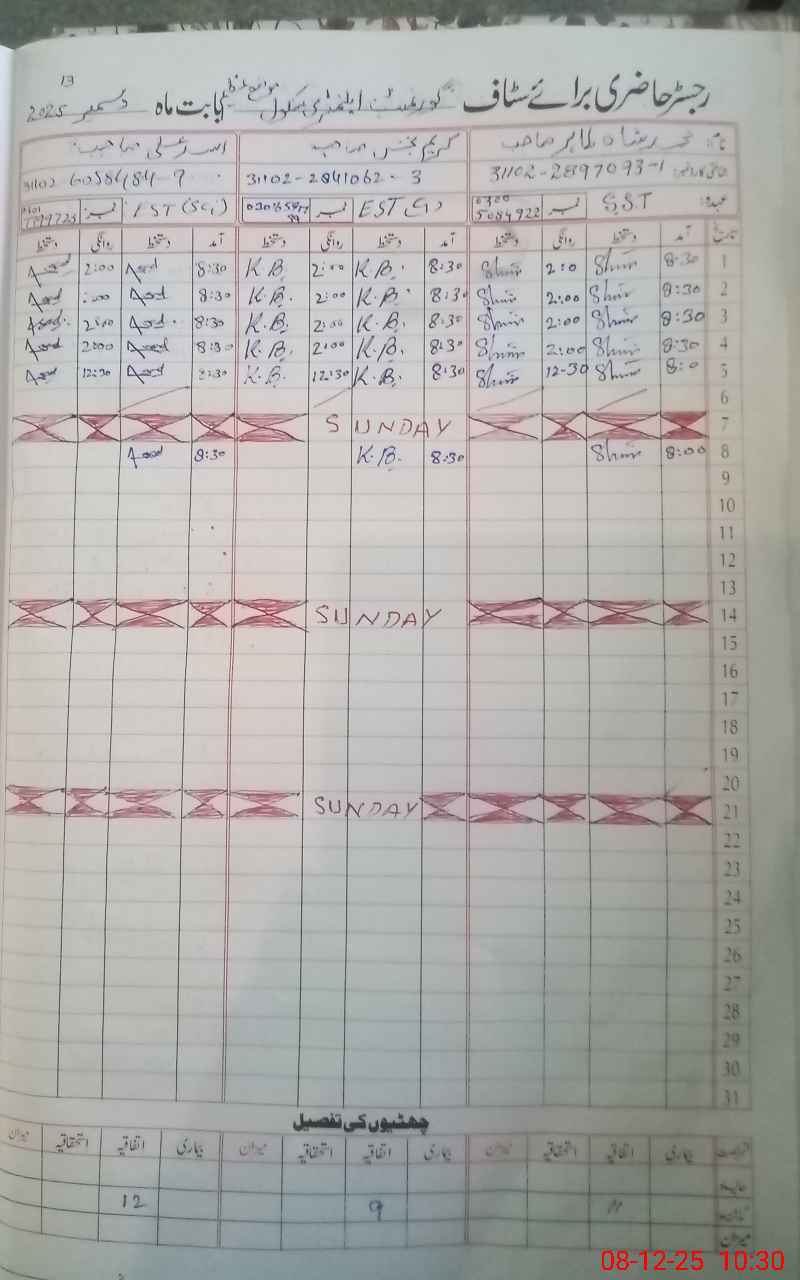 13
رجسٹر حاضری برائے سٹاف گورنمنٹ ایلیمنٹری سکول بابت ماہ دسمبر 2025
نام: محمد رضا طاہر صاحب کریم بخش صاحب اسد علی صاحب
31102-2897093-1 31102-2841062-3 31102
عہدہ: S.S.T نمبر 0300 5084922 EST نمبر EST (Sci) نمبر
تاریخ آمد دستخط روانگی دستخط آمد دستخط روانگی دستخط آمد دستخط روانگی دستخط
1 8:30 2:0 8:30 K.B. 2:00 K.B. 8:30 Asad 2:00 Asad
2 8:30 2:00 8:30 K.B. 2:00 K.B. 8:30 Asad :00 Asad
3 8:30 2:00 8:30 K.B. 2:00 K.B. 8:30 Asad 2:00 Asad
4 8:30 2:00 8:30 K.B. 2:00 K.B. 8:30 Asad 2:00 Asad
5 8:0 12-30 8:30 K.B. 12:30 K.B. 8:30 Asad 12:30 Asad
6
7 SUNDAY
8 8:00 8:30 K.B. 8:30 Asad
9
10
11
12
13
14 SUNDAY
15
16
17
18
19
20
21 SUNDAY
22
23
24
25
26
27
28
29
30
31
چھٹیوں کی تفصیل
بیماری اتفاقیہ استحقاقیہ میزان بیماری اتفاقیہ استحقاقیہ میزان بیماری اتفاقیہ استحقاقیہ میزان
9 12
میزان
08-12-25 10:30